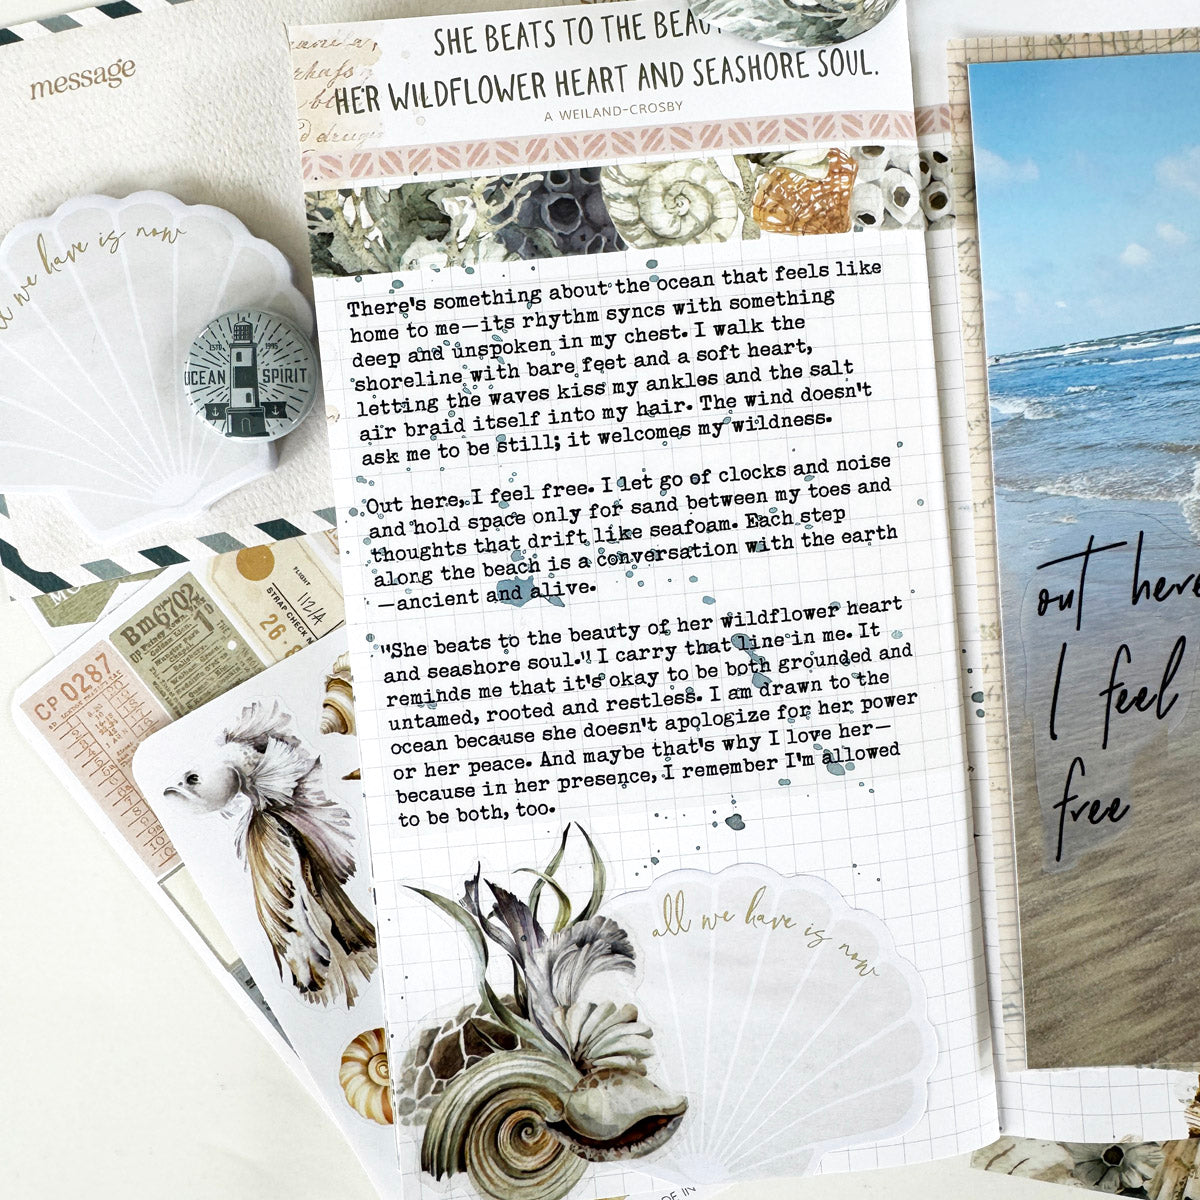 message
SHE BEATS TO THE
HER WILDFLOWER HEART AND SEASHORE SOUL.
A WEILAND-CROSBY
we have is now
ESTD. 1995
OCEAN SPIRIT
There's something about the ocean that feels like
home to me—its rhythm syncs with something
deep and unspoken in my chest. I walk the
shoreline with bare feet and a soft heart,
letting the waves kiss my ankles and the salt
air braid itself into my hair. The wind doesn't
ask me to be still; it welcomes my wildness.
Out here, I feel free. I let go of clocks and noise
and hold space only for sand between my toes and
thoughts that drift like seafoam. Each step
along the beach is a conversation with the earth
—ancient and alive.
"She beats to the beauty of her wildflower heart
and seashore soul." I carry that line in me. It
reminds me that it's okay to be both grounded and
untamed, rooted and restless. I am drawn to the
ocean because she doesn't apologize for her power
or her peace. And maybe that's why I love her—
because in her presence, I remember I'm allowed
to be both, too.
all we have is now
out here
I feel
free
Bm6702
FLIGHT
112/A
STRAP CHECK
26
CP0287